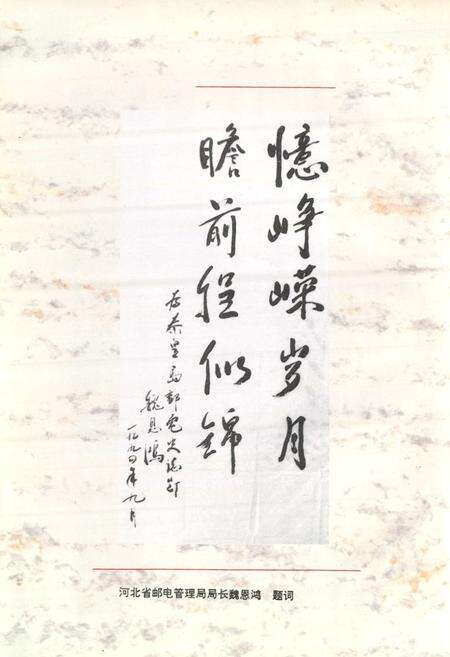 憶峥嵘岁月
瞻前程似锦
为秦皇岛邮电史志题
魏恩鸿
一九九四年九月
河北省邮电管理局局长魏恩鸿 题词